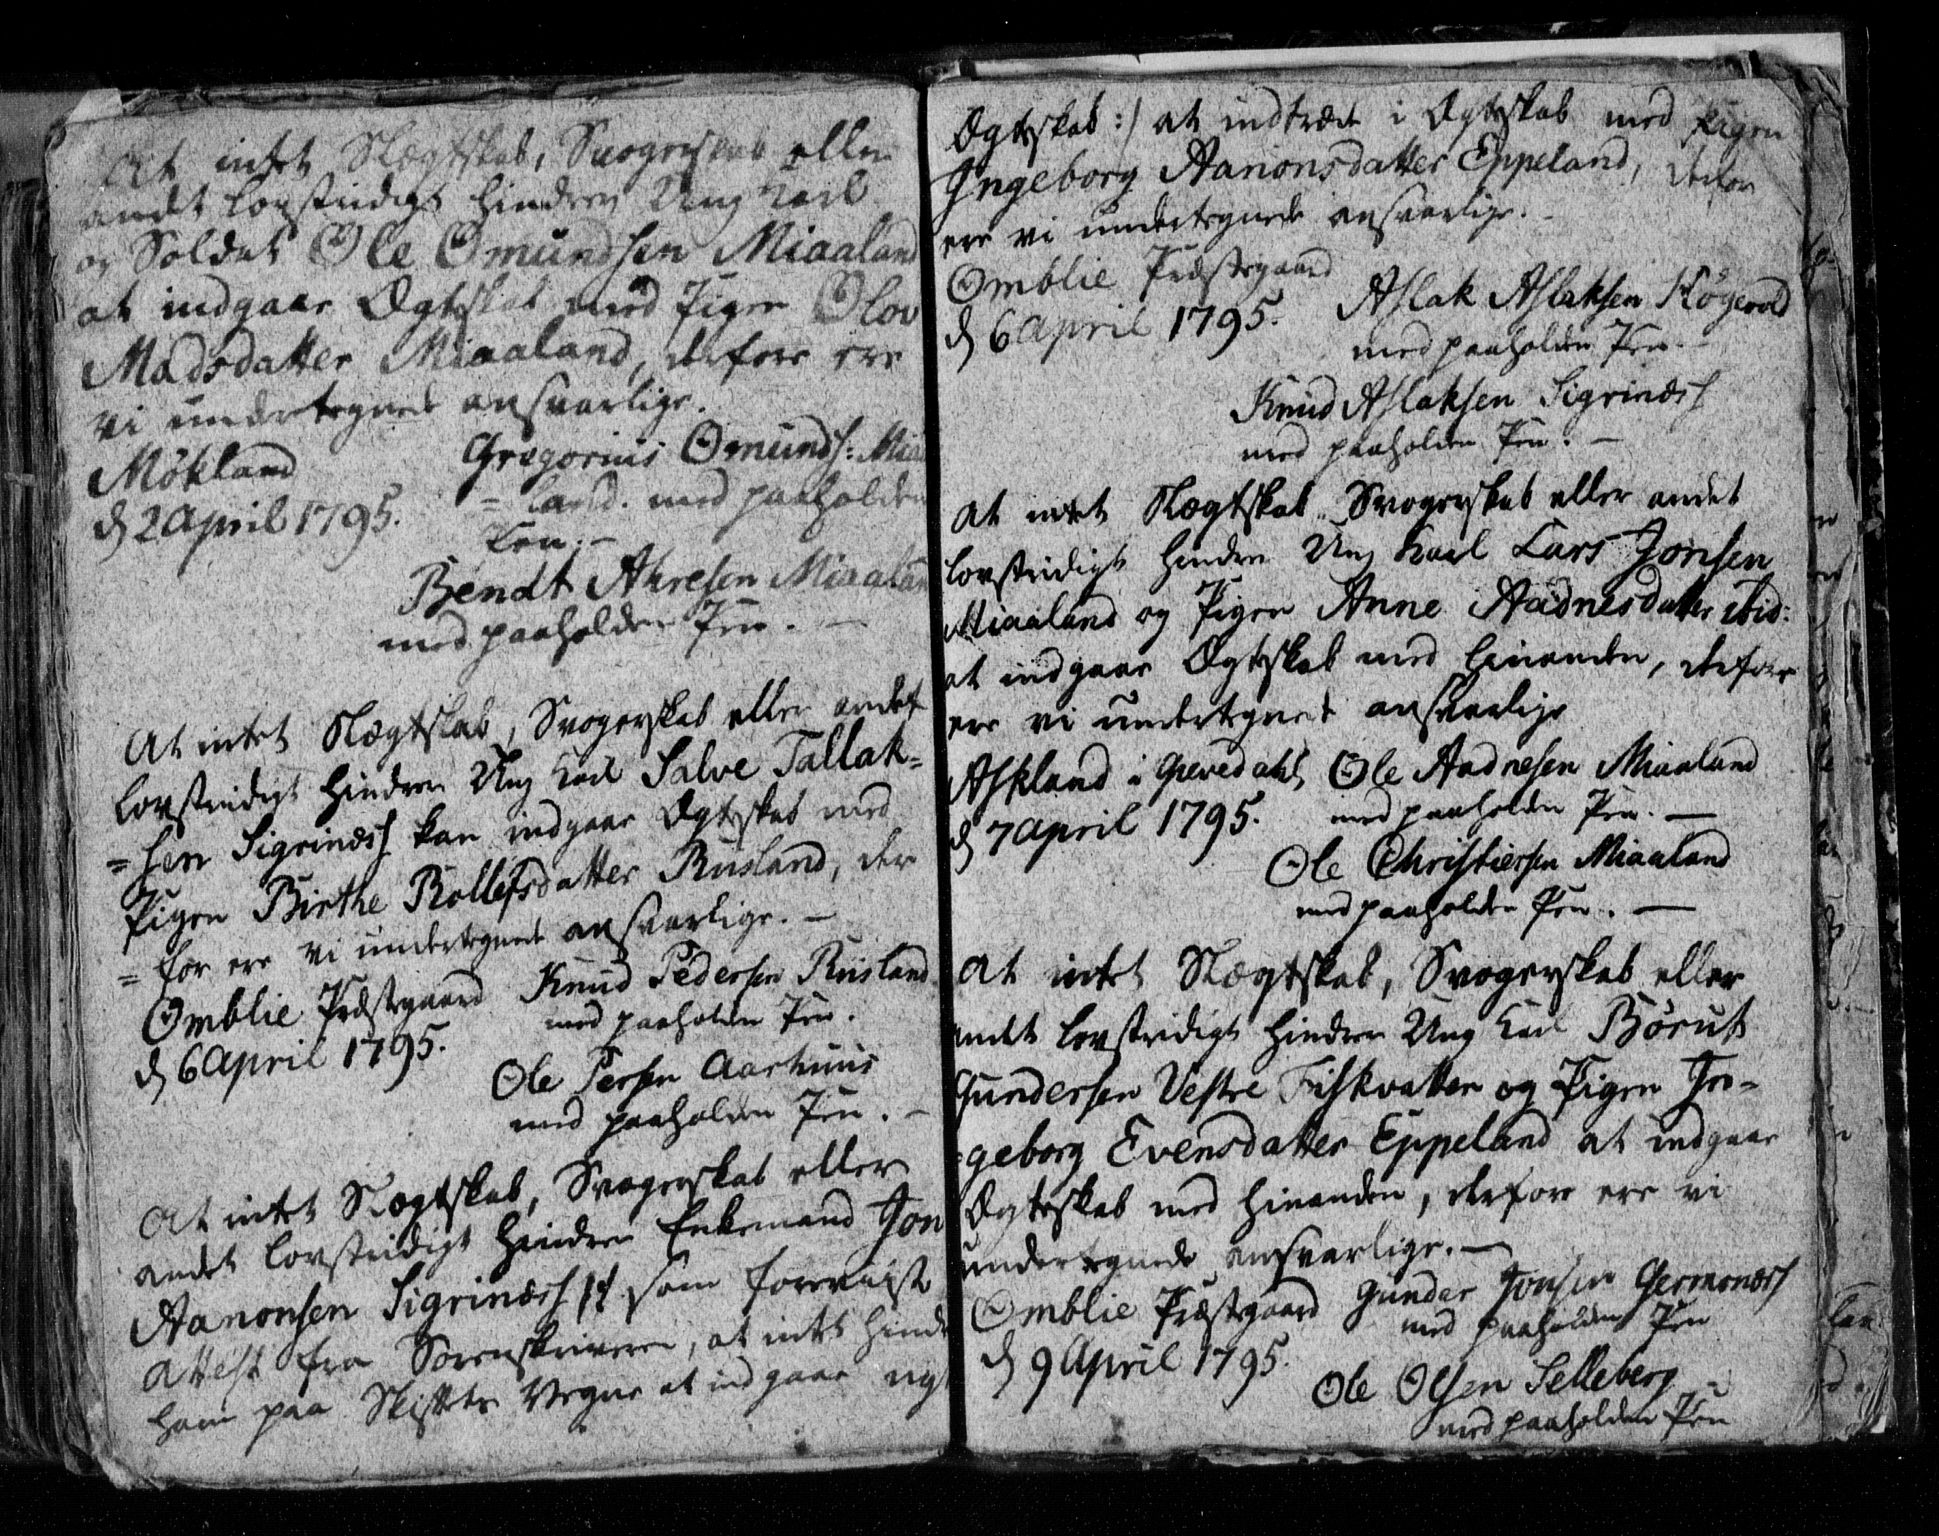 At intet Slægtskab, Svogerskab eller
andet lovstridigt Hindrer Ung Karl
og Soldat Ole Omundsen Miaaland
at indgaae Ægteskab med Pigen Olov
Madsdatter Miaaland, derfore ere
vi undertegnede ansvarlige.
Møkland
d 2 April 1795.
Gregorius Omunds: Mia
= land. med paaholden
Pen. —
Bendt Ahresen Miaaland
med paaholden Pen. —
At intet Slægtskab, Svogerskab eller andet
lovstridigt Hindrer Ung Karl Salve Tallak=
= sen Sigrinæs kan indgaae Ægteskab med
Pigen Birthe Rollefsdatter Rusland, der
= for ere vi undertegnede ansvarlige. —
Omblie Præstegaard
d 6 April 1795.
Knud Pedersen Rusland
med paaholden Pen.
Ole Persen Aarhuus
med paaholden Pen. —
At intet Slægtskab, Svogerskab eller
andet lovstridigt Hindrer Enkemand Jon
Aanonsen Sigrinæs /: som foreviist
Attest fra Sorenskriveren, at intet hindr
ham paa Skiftets Vegne at indgaae nyt
Ægteskab :/ at indtræde i Ægteskab med Pigen
Ingeborg Aanonsdatter Eppeland, derfor
ere vi undertegnede ansvarlige. —
Omblie Præstegaard
d 6 April 1795.
Aslak Aslaksen Høgevold
med paaholden Pen. —
Knud Aslaksen Sigrinæs
med paaholden Pen. —
At intet Slægtskab Svogerskab eller andet
lovstridigt Hindrer Ung Karl Lars Jonsen
Miaaland og Pigen Anne Aadnesdatter ibid:
at indgaae Ægteskab med hinanden, derfore
ere vi undertegnede ansvarlige
Askland i Gievedahl
d 7 April 1795.
Ole Aadnesen Miaaland
med paaholden Pen. —
Ole Christiersen Miaaland
med paaholden Pen. —
At intet Slægtskab, Svogerskab eller
andet lovstridigt Hindrer Ung Karl Børut
Gundersen Vestre Fiskvatten og Pigen In=
=geborg Evensdatter Eppeland at indgaae
Ægteskab med hinanden, derfore ere vi
undertegnede ansvarlige. —
Omblie Præstegaard
d 9 April 1795.
Gunder Jonsen Germonæs
med paaholden Pen
Ole Olsen Selleberg
med paaholden Pen